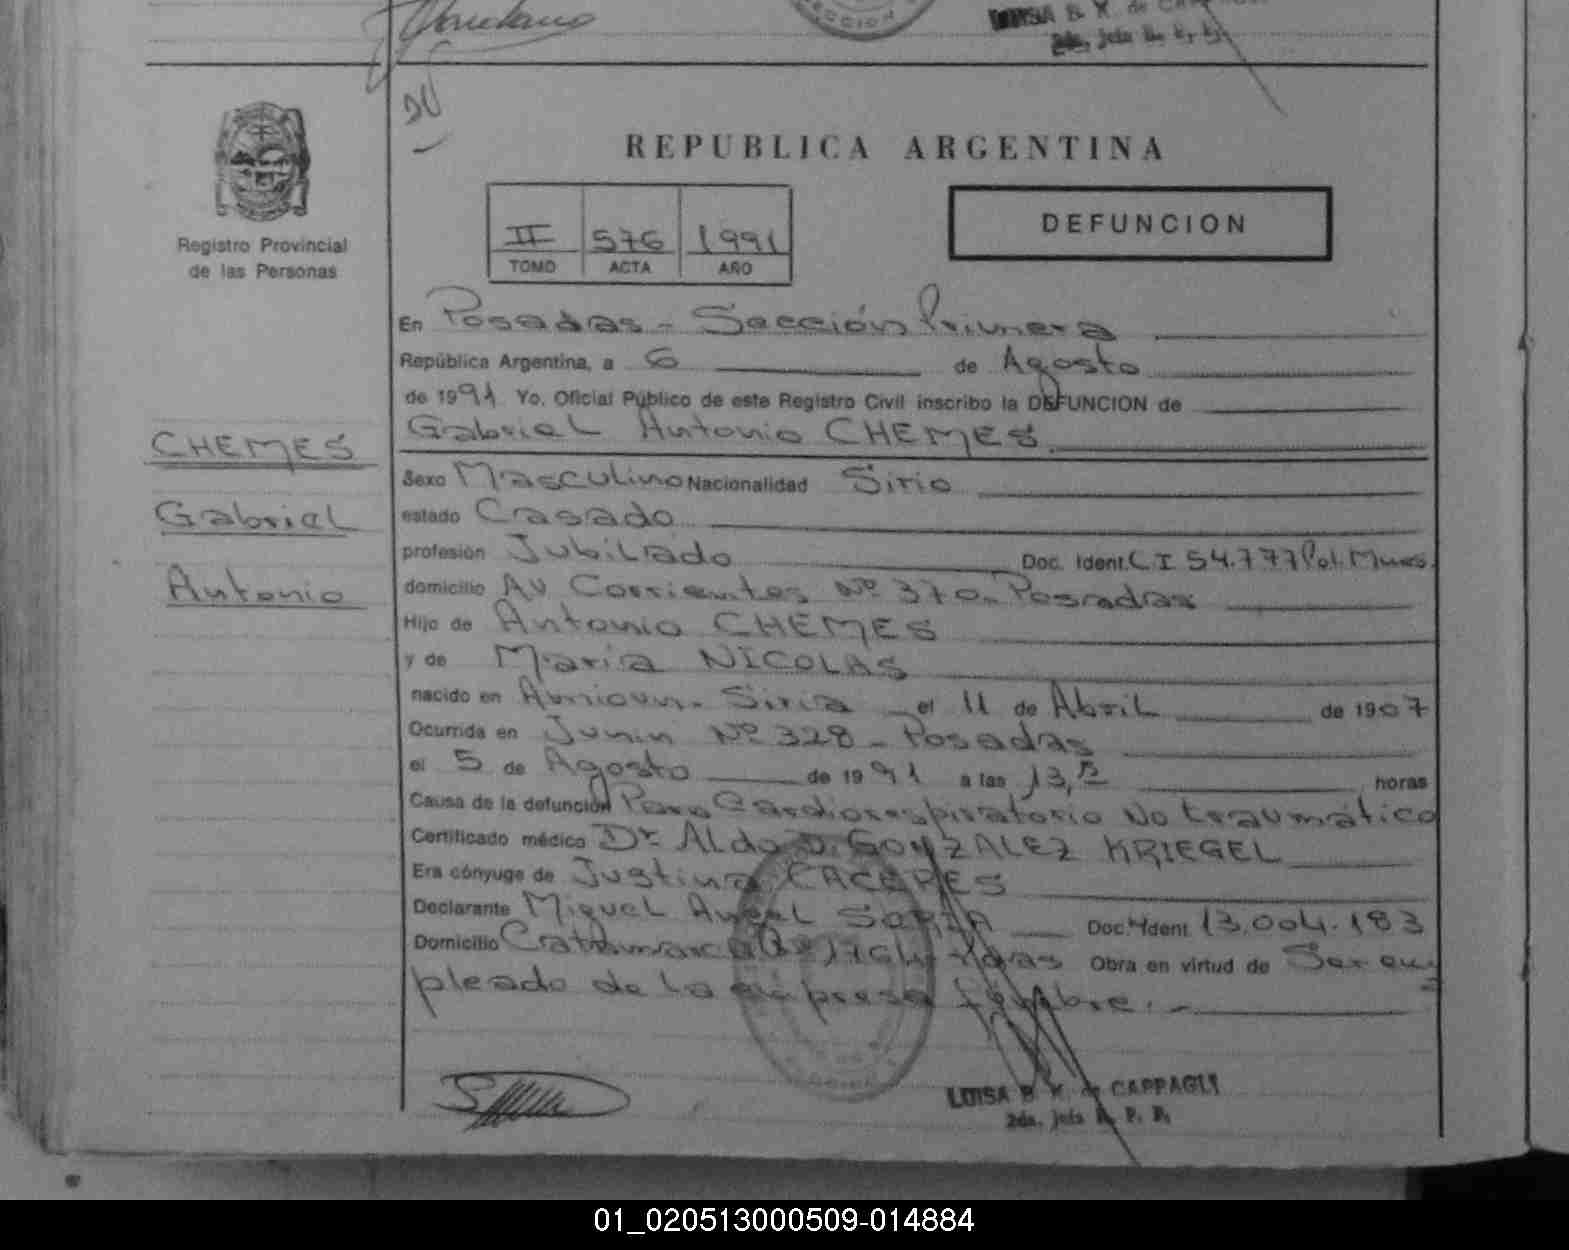 LUISA B. K. de
2da. Jefe R. P. P.
REPUBLICA ARGENTINA
Registro Provincial
de las Personas
II 576 1991
TOMO ACTA AÑO
DEFUNCION
En Posadas - Sección Primera
República Argentina, a 6 de Agosto
de 1991 Yo, Oficial Público de este Registro Civil inscribo la DEFUNCION de
Gabriel Antonio CHEMES
CHEMES
Gabriel
Antonio
Sexo Masculino Nacionalidad Sirio
estado Casado
profesión Jubilado Doc. Ident. C I 54.777 Pol. Mnes.
domicilio Av Corrientes Nº 370 - Posadas
Hijo de Antonio CHEMES
y de María NICOLAS
nacido en Siria el 11 de Abril de 1907
Ocurrida en Junin Nº 328 - Posadas
el 5 de Agosto de 1991 a las 13, horas
Causa de la defunción Paro Cardiorespiratorio No traumático
Certificado médico Dr. Aldo D. GONZALEZ KRIEGEL
Era cónyuge de Justina CACERES
Declarante Miguel Angel SORIA Doc. Ident. 13.004.183
Domicilio Catamarca Obra en virtud de Ser em-
pleado de la empresa fúnebre.-
LUISA B. K. de CAPPAGLI
2da. Jefe R. P. P.
01_020513000509-014884